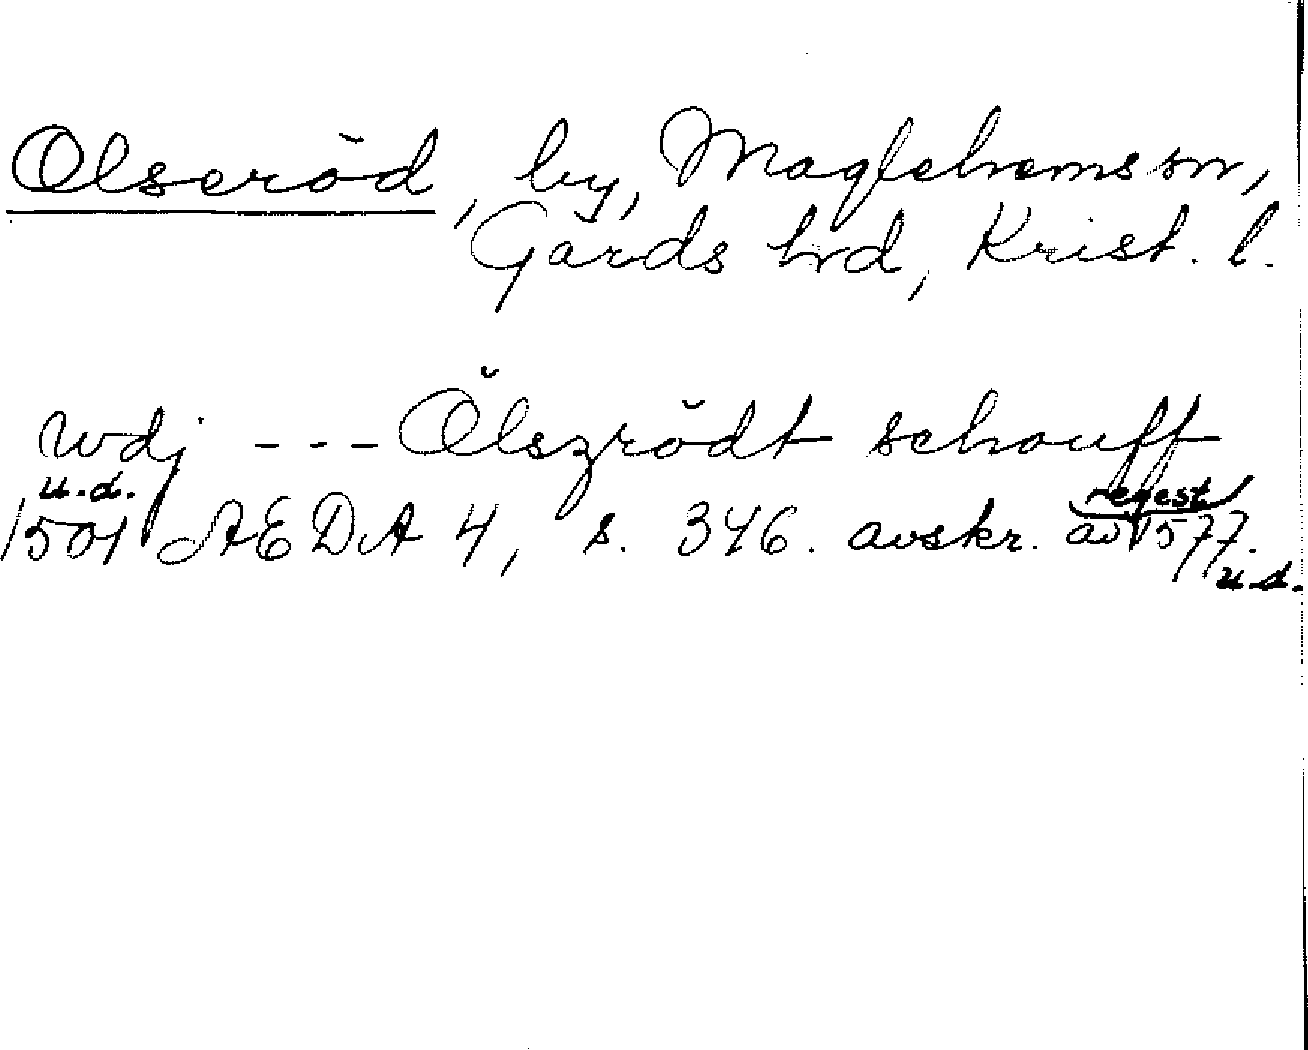 Olseröd, by, Maglehems sn,
Gärds hrd, Krist. l.
wdj --- Ölszrödt schouff
u.d. regest
1501 AEDA 4, s. 346. avskr. av 1577.
u.d.